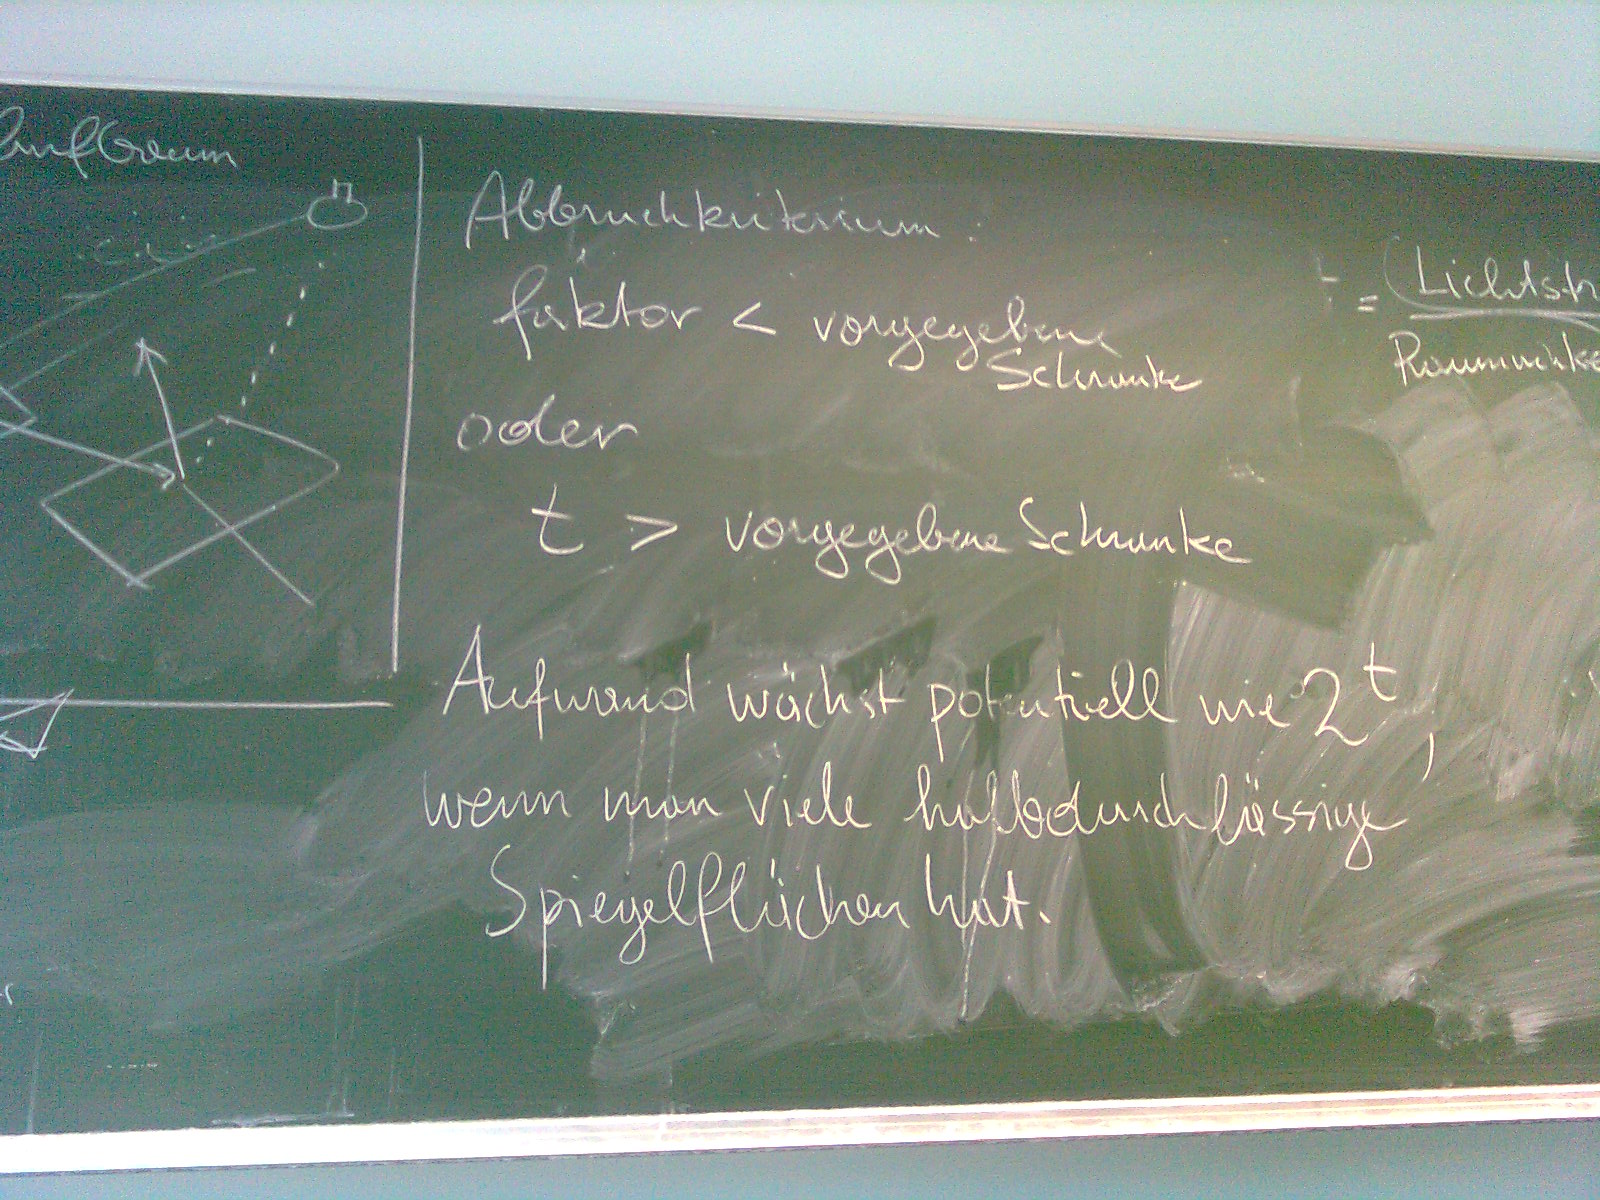 Abbruchkriterium:
faktor < vorgegebene
Schranke
oder
t > vorgegebene Schranke
Aufwand wächst potentiell wie 2^t,
wenn man viele halbdurchlässige
Spiegelflächen hat.
= Lichtstr
Raumwinke